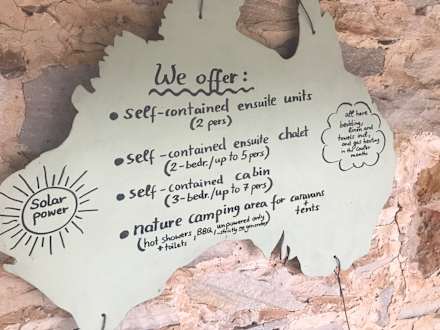 We offer:
• self-contained ensuite units
(2 pers)
• self-contained ensuite chalet
(2-bedr./up to 5 pers)
• self-contained cabin
(3-bedr./up to 7 pers)
• nature camping area for caravans
+ tents
(hot showers, BBQ, unpowered only
+ toilets
Solar
power
all have
bedding,
linen and
towels incl.
and gas heating
in the cooler
months